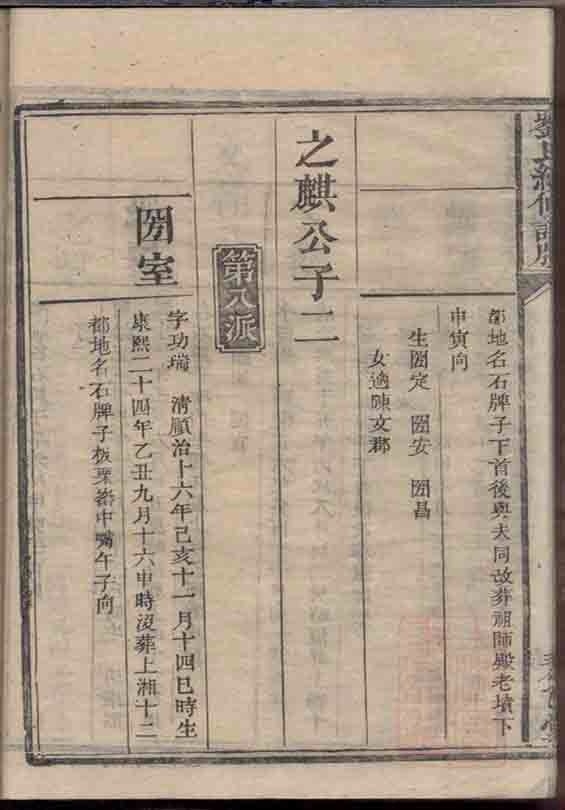 劉氏續修譜牒
都地名石牌子下首後與夫同故葬祖師殿老墳下
申寅向
生圀定 圀安 圀昌
女適陳文郡
之麒公子二
第八派
圀室
字功瑞 清順治十六年己亥十一月十四巳時生
康熙二十四年乙丑九月十六申時沒葬上湘十二
都地名石牌子板栗 中嘴午子向